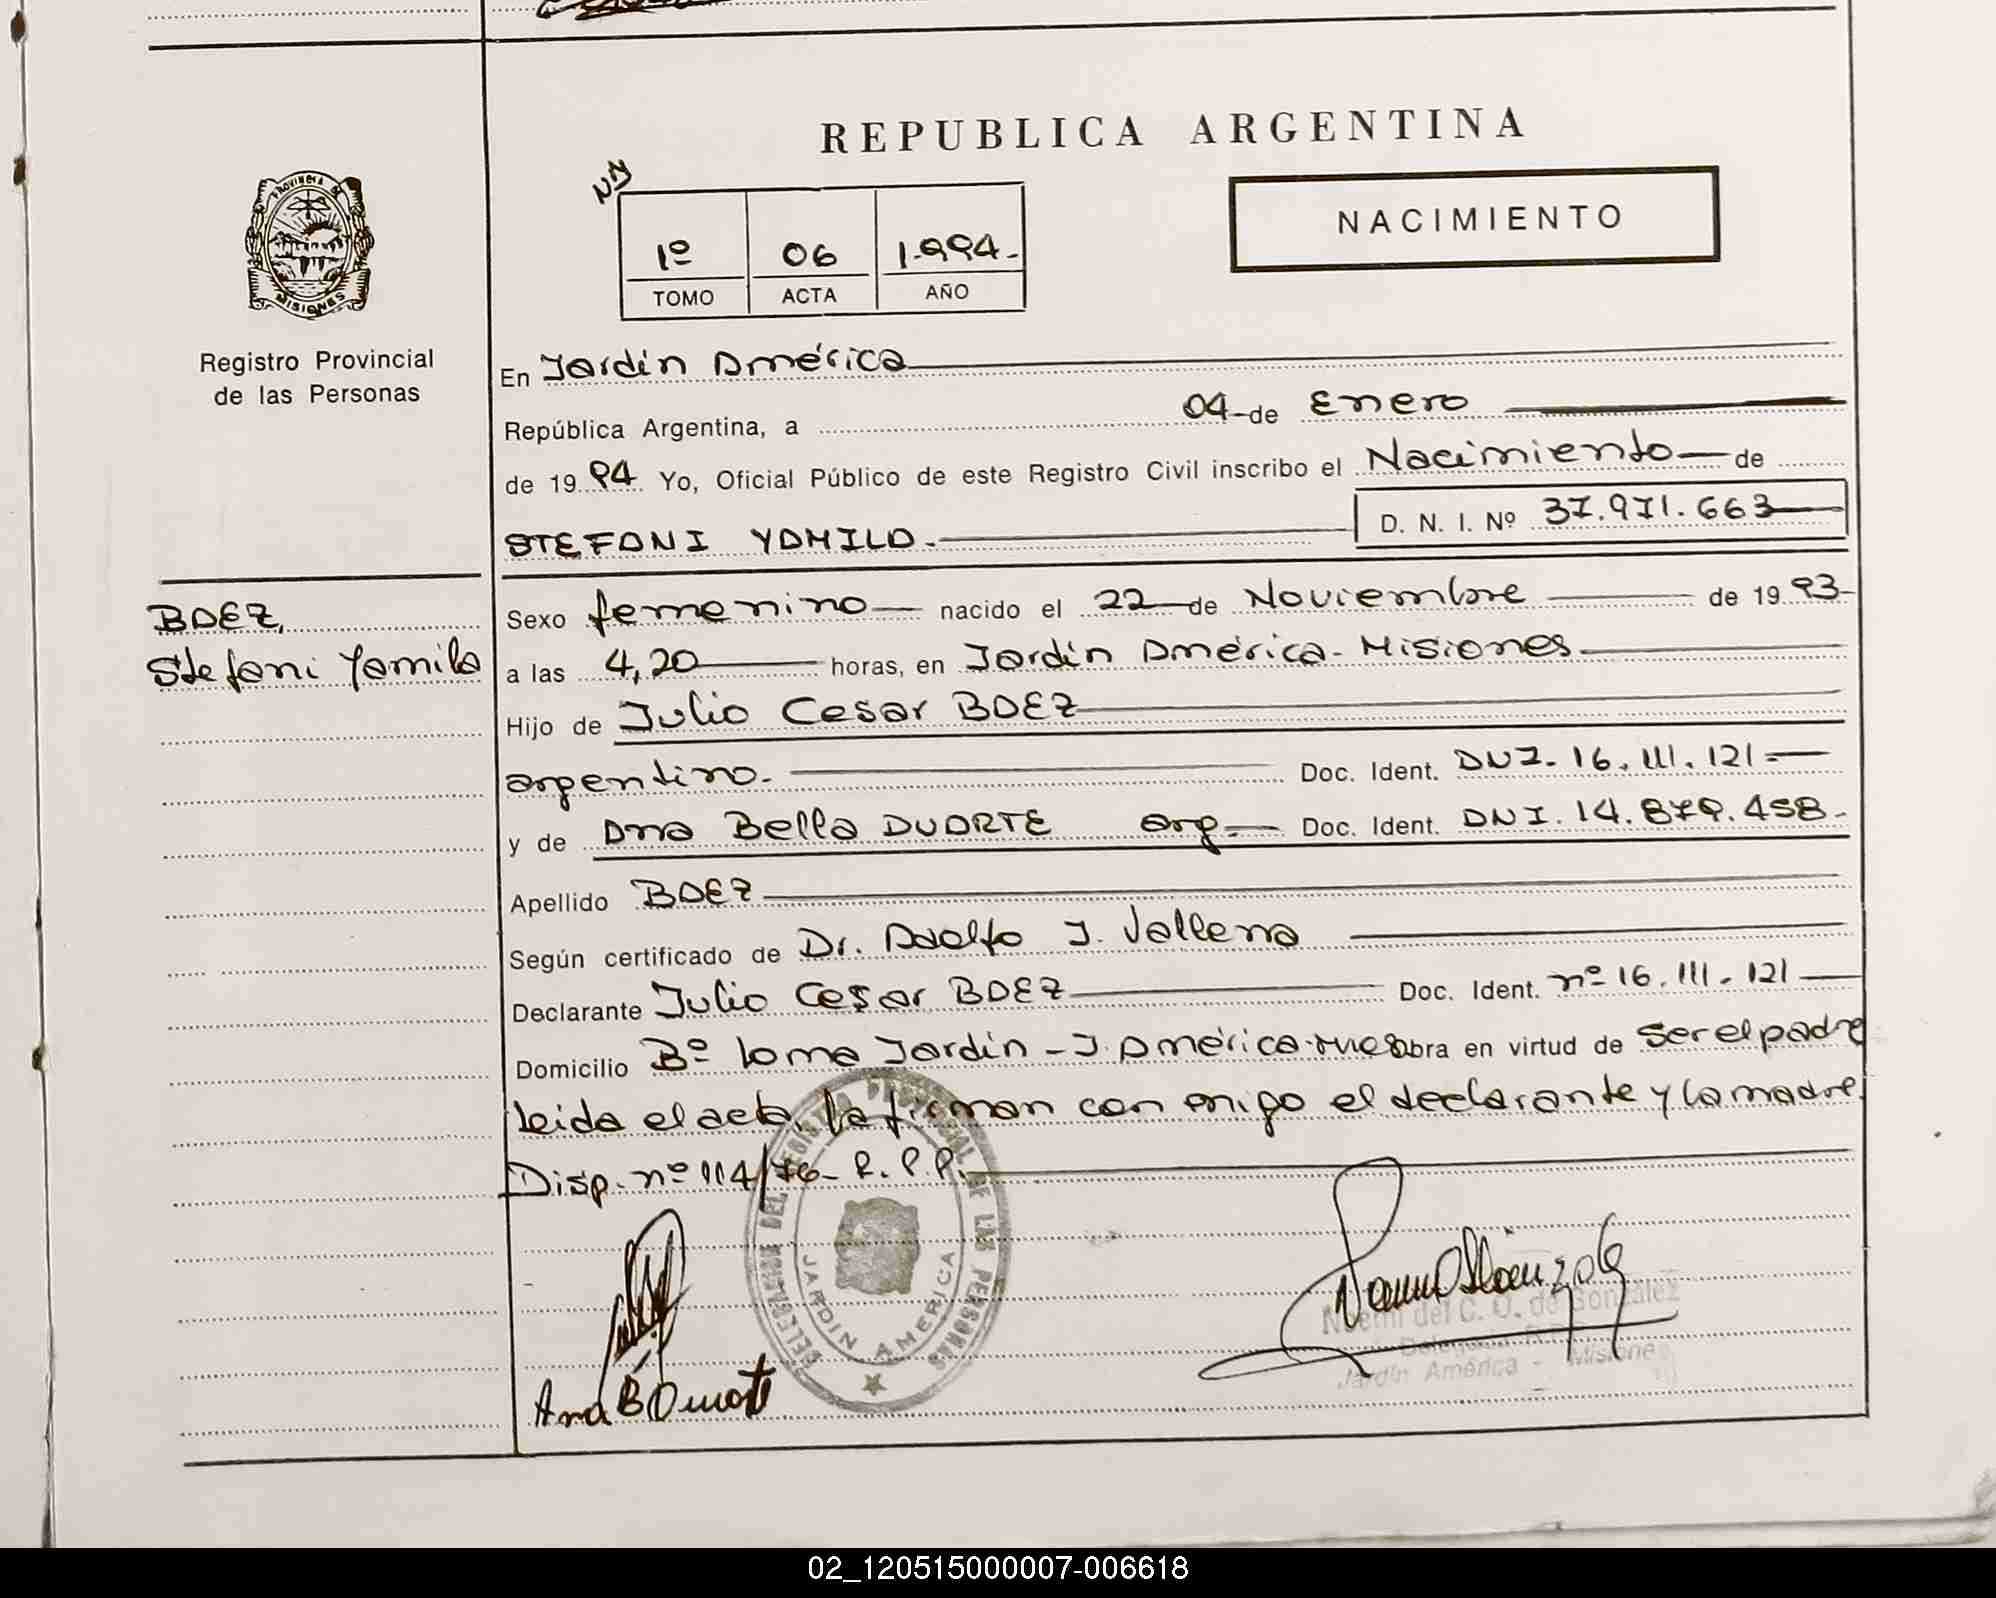 REPUBLICA ARGENTINA
NACIMIENTO
1º 06 1.994.-
TOMO ACTA AÑO
PROVINCIA DE
MISIONES
Registro Provincial
de las Personas
En Jardín América
República Argentina, a 04 de Enero
de 1994 Yo, Oficial Público de este Registro Civil inscribo el Nacimiento de
STEFANI YAMILA.- D. N. I. Nº 37.971.663
BAEZ,
Stefani Yamila
Sexo femenino nacido el 22 de Noviembre de 1993
a las 4,20 horas, en Jardín América - Misiones
Hijo de Julio Cesar BAEZ
argentino.- Doc. Ident. DNI. 16.111.121
y de Ana Bella DUARTE arg. Doc. Ident. DNI. 14.879.458.-
Apellido BAEZ
Según certificado de Dr. Adolfo J.
Declarante Julio Cesar BAEZ Doc. Ident. nº 16.111.121
Domicilio Bº Loma Jardín - J. América obra en virtud de ser el padre
leida el acta, la firman con migo el declarante y la madre.
Disp. nº 114/76 - R.P.P.
DELEGACION DEL REGISTRO PROVINCIAL DE LAS PERSONAS
JARDIN AMERICA
Ana B Duarte
Noemí del C. O. de González
Jardín América - Misiones
02_120515000007-006618